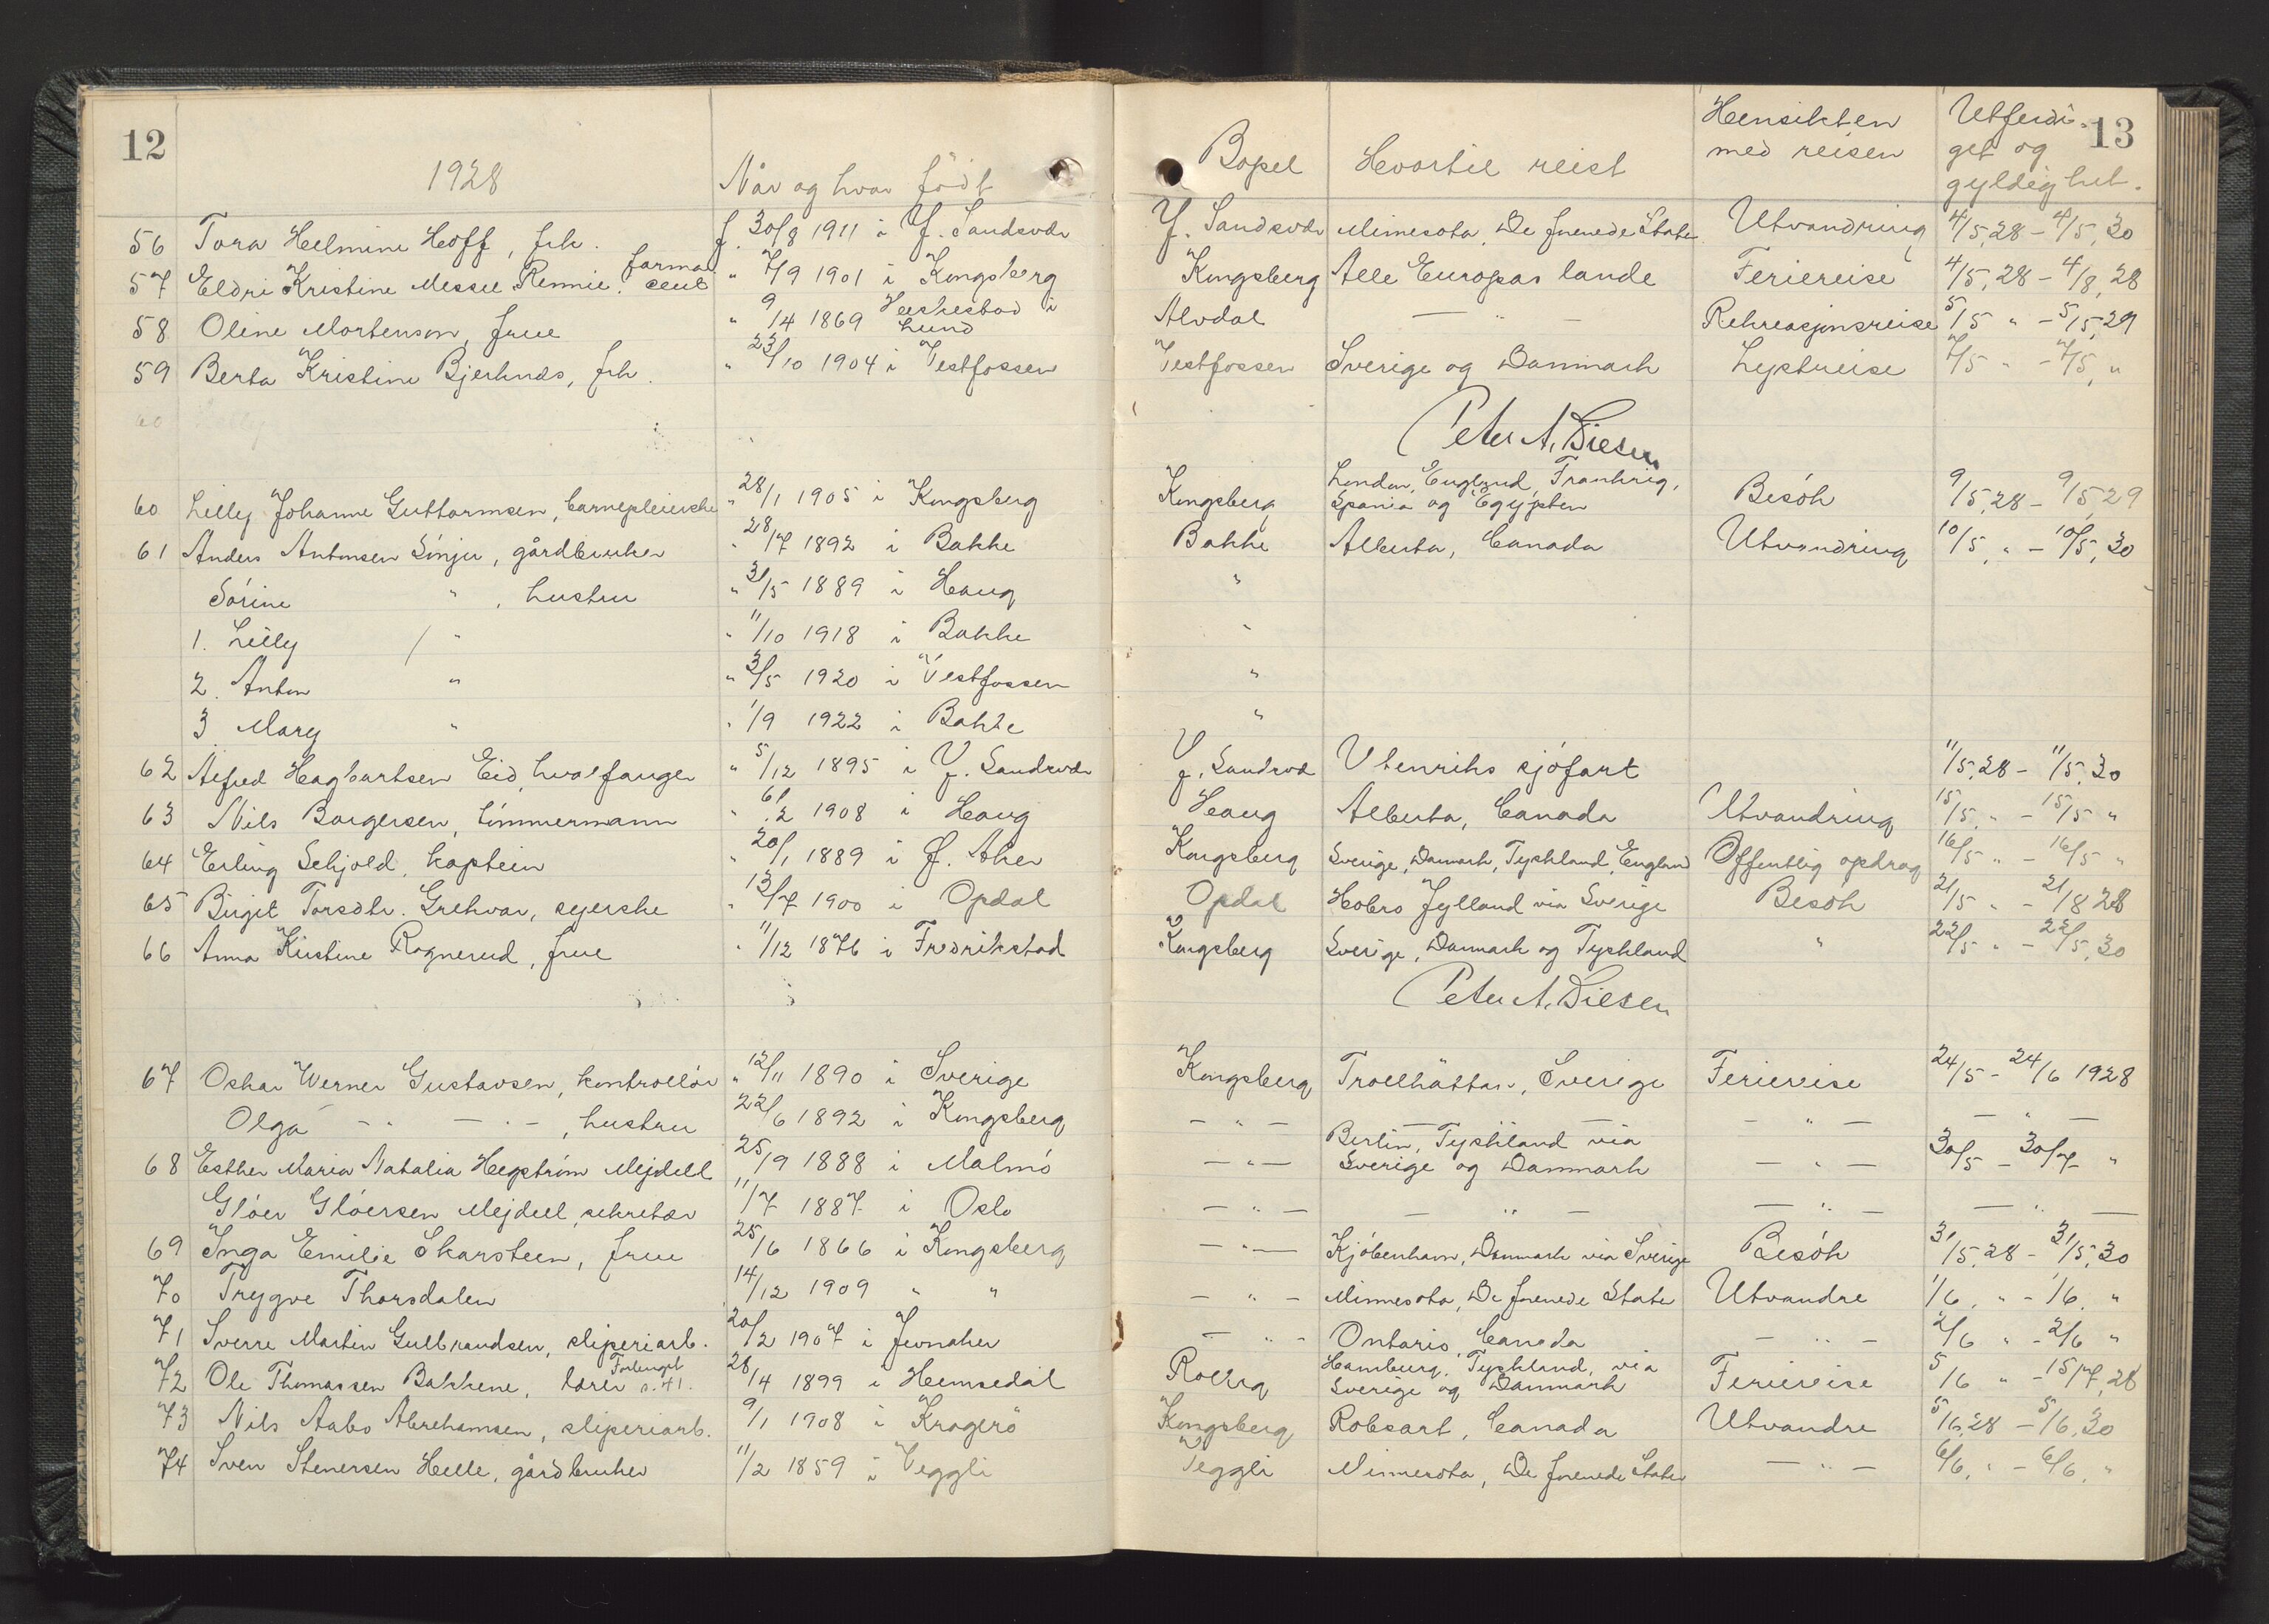 12
1928
Når og hvor født
Bopel
Hvortil reist
Hensikten
med reisen
Utferdi-
get og
gyldighet.
13
56 Tora Helmine Hoff, frk. f. 30/8 1911 i Y. Sandsvær Y. Sandsvær Minnesota, De forenede Stater Utvandring 4/5.28 - 4/5.30
57 Eldri Kristine Messel Rennie. farmaceut " 7/9 1901 i Kongsberg Kongsberg Alle Europas lande Feriereise 4/5.28 - 4/8.28
58 Oline Mortenson, frue " 9/4 1869 Heskestad i Lund Alvdal — " — Rekreasjonsreise 5/5 " - 5/5.29
59 Berta Kristine Bjerknæs, frk. " 23/10 1904 i Vestfossen Vestfossen Sverige og Danmark Lystreise 7/5 " - 7/5. "
60
Peter A. Diesen
60 Lilly Johanne Guttormsen, barnepleierske " 28/1 1905 i Kongsberg Kongsberg London, England, Frankrig, Spania og Egypten Besøk 9/5.28 - 9/5.29
61 Anders Antonsen Sønju, gårdbruker " 28/7 1892 i Bakke Bakke Alberta, Canada Utvandring 10/5. " - 10/5.30
Sørine " , hustru " 31/5 1889 i Haug "
1. Lilly " " 11/10 1918 i Bakke "
2. Anton " " 3/5 1920 i Vestfossen "
3. Mary " " 1/9 1922 i Bakke "
62 Alfred Hagbartsen Eid, hvalfanger " 5/12 1895 i Y. Sandsvær Y. Sandsvær Utenriks sjøfart 11/5.28 - 11/5.30
63 Nils Borgersen, tømmermann " 6/2 1908 i Haug Haug Alberta, Canada Utvandring 15/5. " - 15/5 "
64 Erling Schjold, kaptein " 20/1 1889 i Ø. Aker Kongsberg Sverige, Danmark, Tyskland, England Offentlig opdrag 16/5 " - 16/5 "
65 Birgit Torsdtr. Grethvar, syerske " 13/7 1900 i Opdal Opdal Hobro Jylland via Sverige Besøk 21/5 " - 21/8 28
66 Anna Kirstine Rognerud, frue " 11/12 1876 i Fredrikstad Kongsberg Sverige, Danmark og Tyskland " 22/5 " - 22/5.30
Peter A. Diesen
67 Oskar Werner Gustavsen, kontrollør " 12/11 1890 i Sverige Kongsberg Trollhättan, Sverige Feriereise 24/5 - 24/6 1928
Olga — " — — " — , hustru 22/6 1892 i Kongsberg — " — — " — — " — — " —
68 Esther Maria Natalia Hegström Mejdell 25/9 1888 i Malmø — " — Berlin, Tyskland via Sverige og Danmark — " — 30/5 - 30/7 "
Gløer Gløersen Mejdell, sekretær 11/7 1887 i Oslo — " — — " — — " — — " —
69 Inga Emilie Skarsteen, frue 25/6 1866 i Kongsberg — " — Kjøbenhavn, Danmark via Sverige Besøk 31/5.28 - 31/5.30
70 Trygve Thorsdalen 14/12 1909 " " — " — Minnesota, De forenede Stater Utvandre 1/6. " - 1/6. "
71 Sverre Martin Gulbrandsen, sliperiarb. 20/2 1907 i Jevnaker — " — Ontario, Canada — " — 2/6 " - 2/6 "
72 Ole Thomassen Bakkene, lærer Forlenget s. 41. 28/4 1899 i Hemsedal Rollag Hamburg, Tyskland, via Sverige og Danmark Feriereise 5/6 " - 15/7.28
73 Nils Aabo Abrahamsen, sliperiarb. 9/1 1908 i Kragerø Kongsberg Robsart, Canada Utvandre 5/6.28 - 5/6.30
74 Sven Stenersen Helle, gårdbruker 11/2 1859 i Veggli Veggli Minnesota, De forenede Stater — " — 6/6. " - 6/6. "